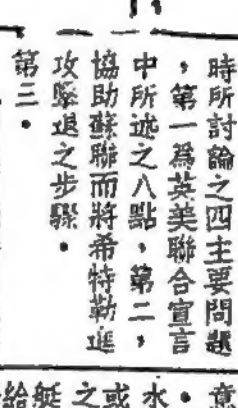 時所討論之四主要問題
，第一爲英美聯合宣言
中所述之八點，第二，
協助蘇聯而將希特勒進
攻擊退之步驟。
第三。
意
。水或之
給艇